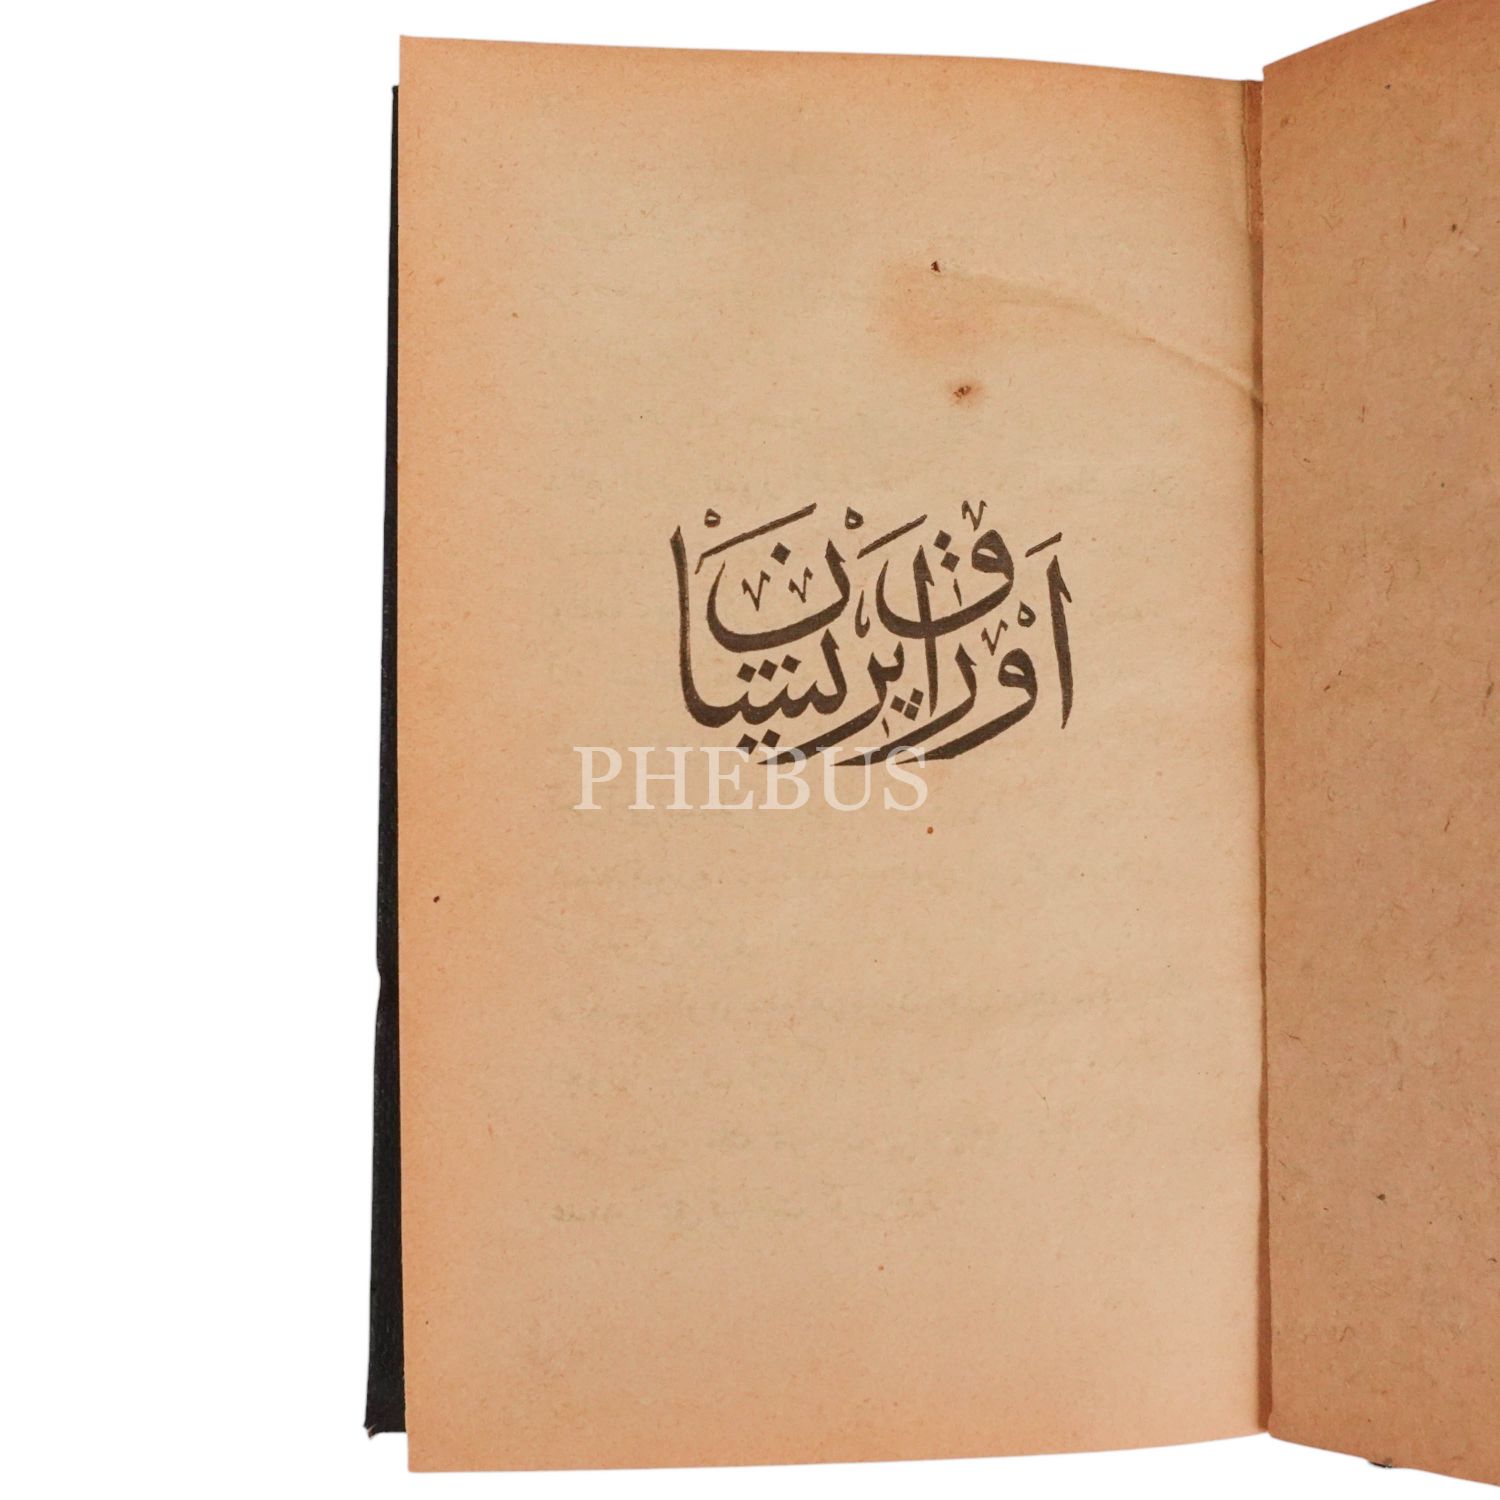 اوراق پریشان
PHEBUS